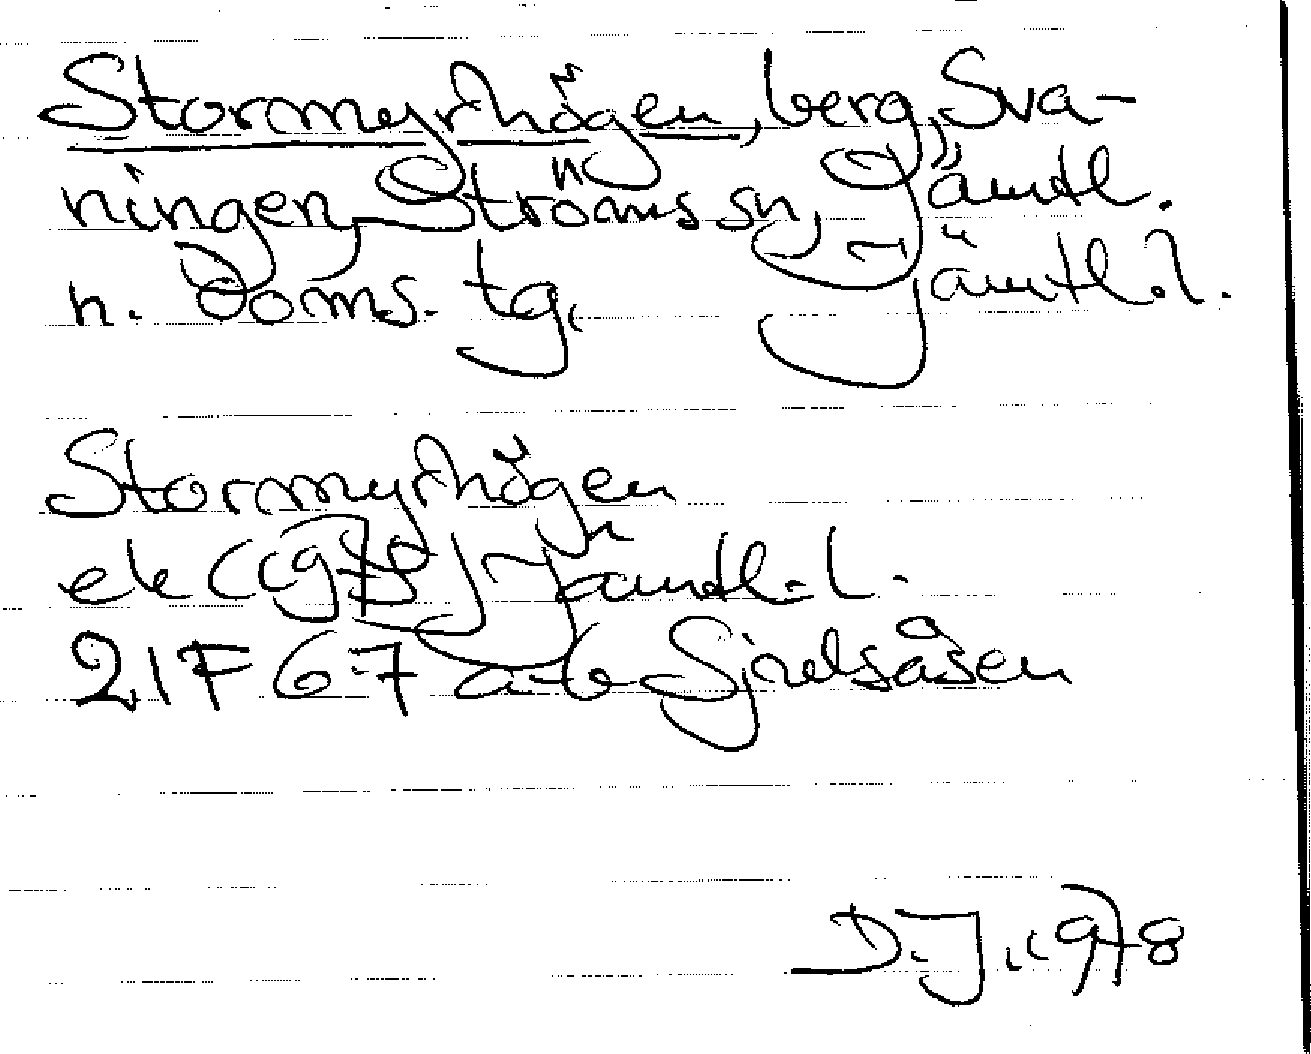 Stormyrhögen, berg, Sva-
ningen, Ströms sn, Jämtl.
n. doms. tg. Jämtl. l.
Stormyrhögen
ek (1975) Jämtl. l.
21F 6-7 a-b Sjoulsåsen
D. J. 1978